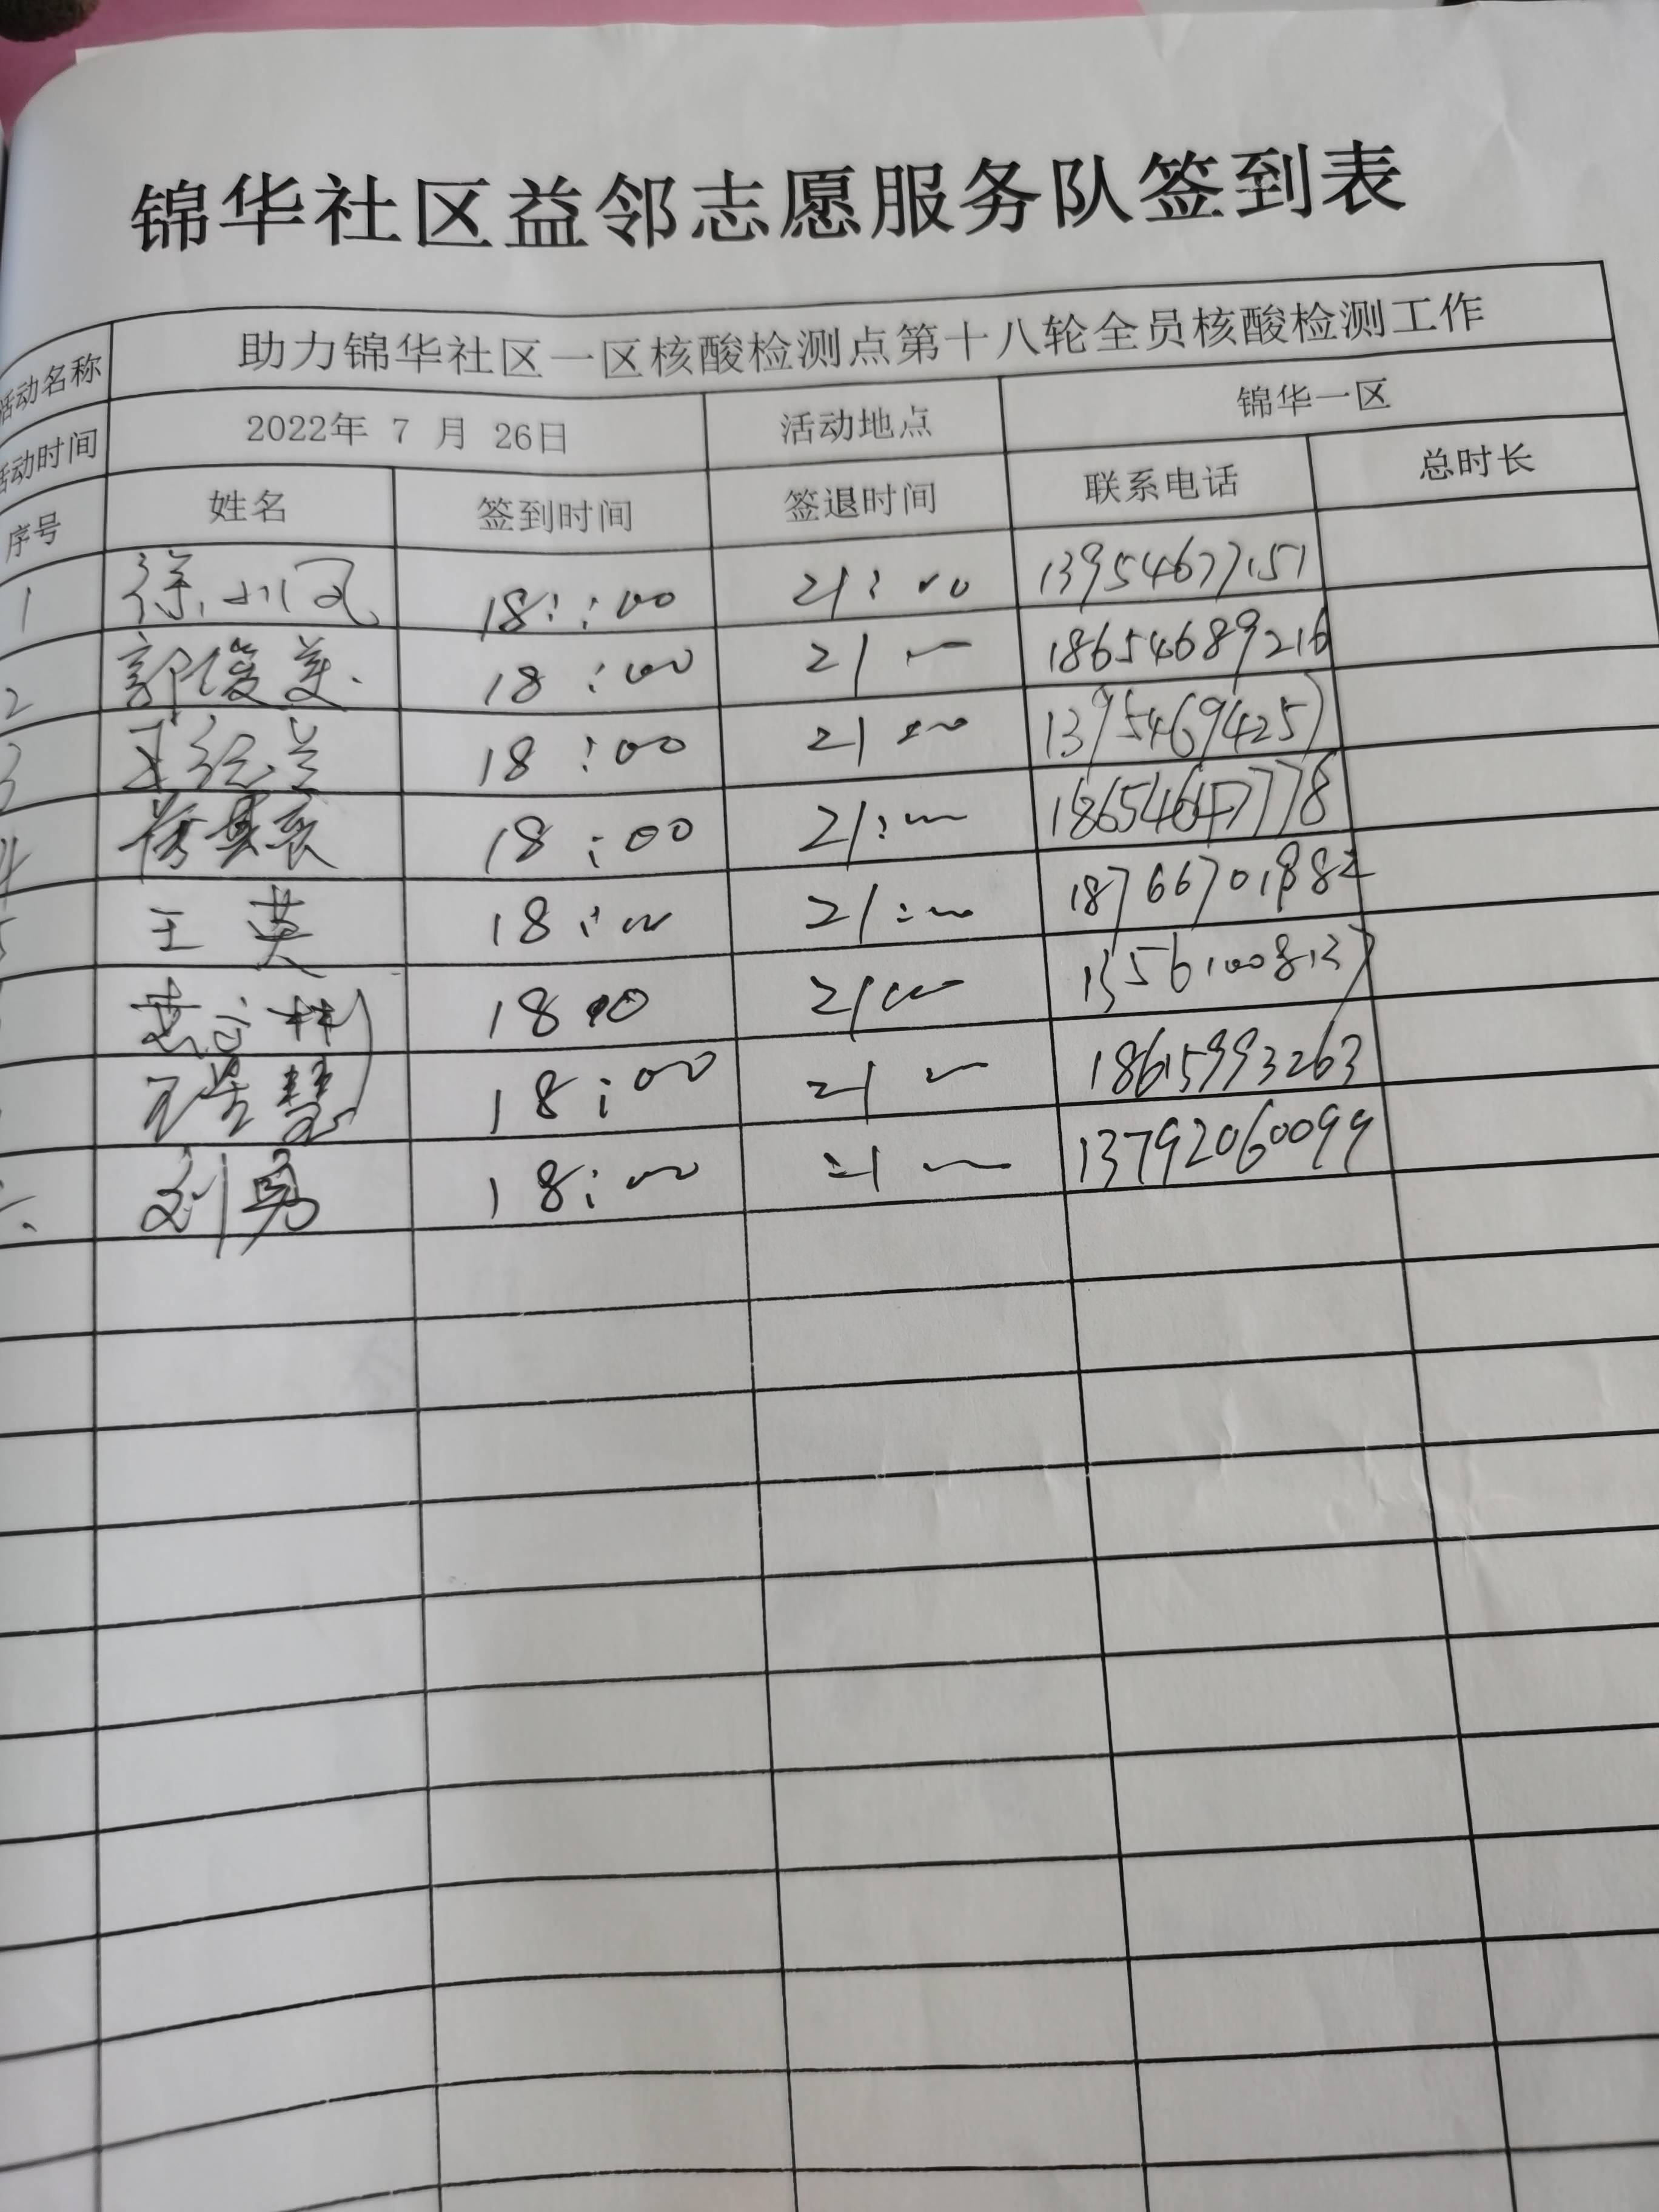 锦华社区益邻志愿服务队签到表
活动名称 助力锦华社区一区核酸检测点第十八轮全员核酸检测工作
活动时间 2022年 7 月 26日 活动地点 锦华一区
序号 姓名 签到时间 签退时间 联系电话 总时长
1 徐小凤 18:00 21:00 13954677151
2 郭俊美 18:00 21 00 18654689216
3 18:00 21 00 13954694257
4 18:00 21:00
5 王英 18:00 21:00 18766701882
18 00 21 00 13561008137
18:00 21 00 18615993263
刘勇 18:00 21 00 13792060099